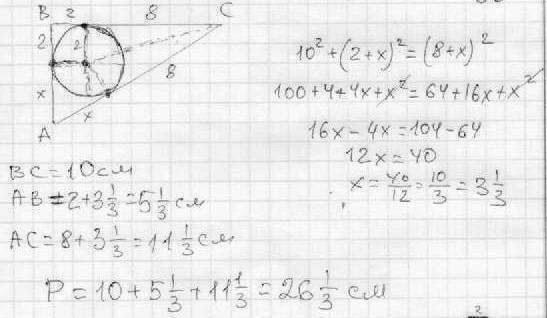 B 2 8 C
2 2
x 8
A x
10² + (2+x)² = (8+x)²
100+4+4x+x² = 64+16x+x²
16x - 4x = 104 - 64
12x = 40
x = 40/12 = 10/3 = 3 1/3
BC = 10 см
AB = 2 + 3 1/3 = 5 1/3 см
AC = 8 + 3 1/3 = 11 1/3 см
P = 10 + 5 1/3 + 11 1/3 = 26 1/3 см
2